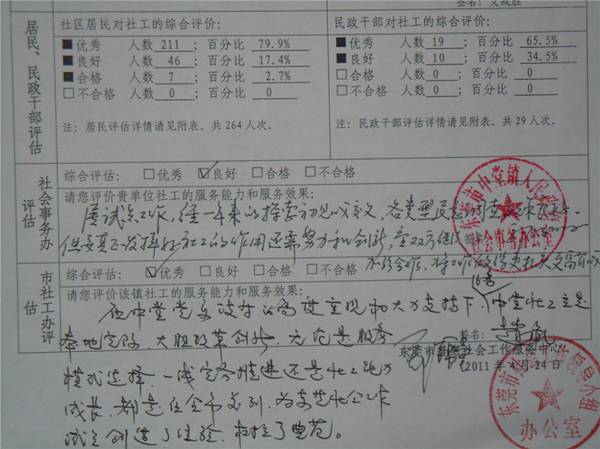 居民、民政干部评估
社区居民对社工的综合评价：
■优秀 人数 211 ；百分比 79.9%
■良好 人数 46 ；百分比 17.4%
■合格 人数 7 ；百分比 2.7%
□不合格 人数 0 ；百分比 0
注：居民评估详情请见附表。共264人次。
民政干部对社工的综合评价：
■优秀 人数 19 ；百分比 65.5%
■良好 人数 10 ；百分比 34.5%
□合格 人数 0 ；百分比 0
□不合格 人数 0 ；百分比 0
注：民政干部评估详情请见附表。共29人次。
社会事务办评估
综合评估：□优秀 ☑良好 □合格 □不合格
请您评价贵单位社工的服务能力和服务效果：
属试点工作，经一年来的探索初见成效，
但要真正发挥社工的作用还要努力和创新，
东莞市中堂镇人民政府
社会事务办公室
市社工办评估
综合评估：☑优秀 □良好 □合格 □不合格
请您评价该镇社工的服务能力和服务效果：
在中堂党委政府的高度重视和大力支持下，中堂社工立足
本地实际，大胆改革创新，无论是服务
模式选择、一线实务推进还是社工能力
成长，都走在全市前列，为东莞社会工作
试点创造了经验，树立了典范。
签名：
东莞市
社会工作服务中心
2011年4月24日
办公室